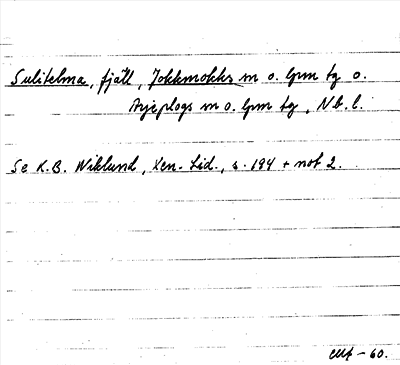 Sulitelma, fjäll, Jokkmokks sn o. lpm tg o.
Arjeplogs sn o. lpm tg, Nb. l.
Se K.B. Wiklund, Xen. Lid., s. 194 + not 2.
- 60.